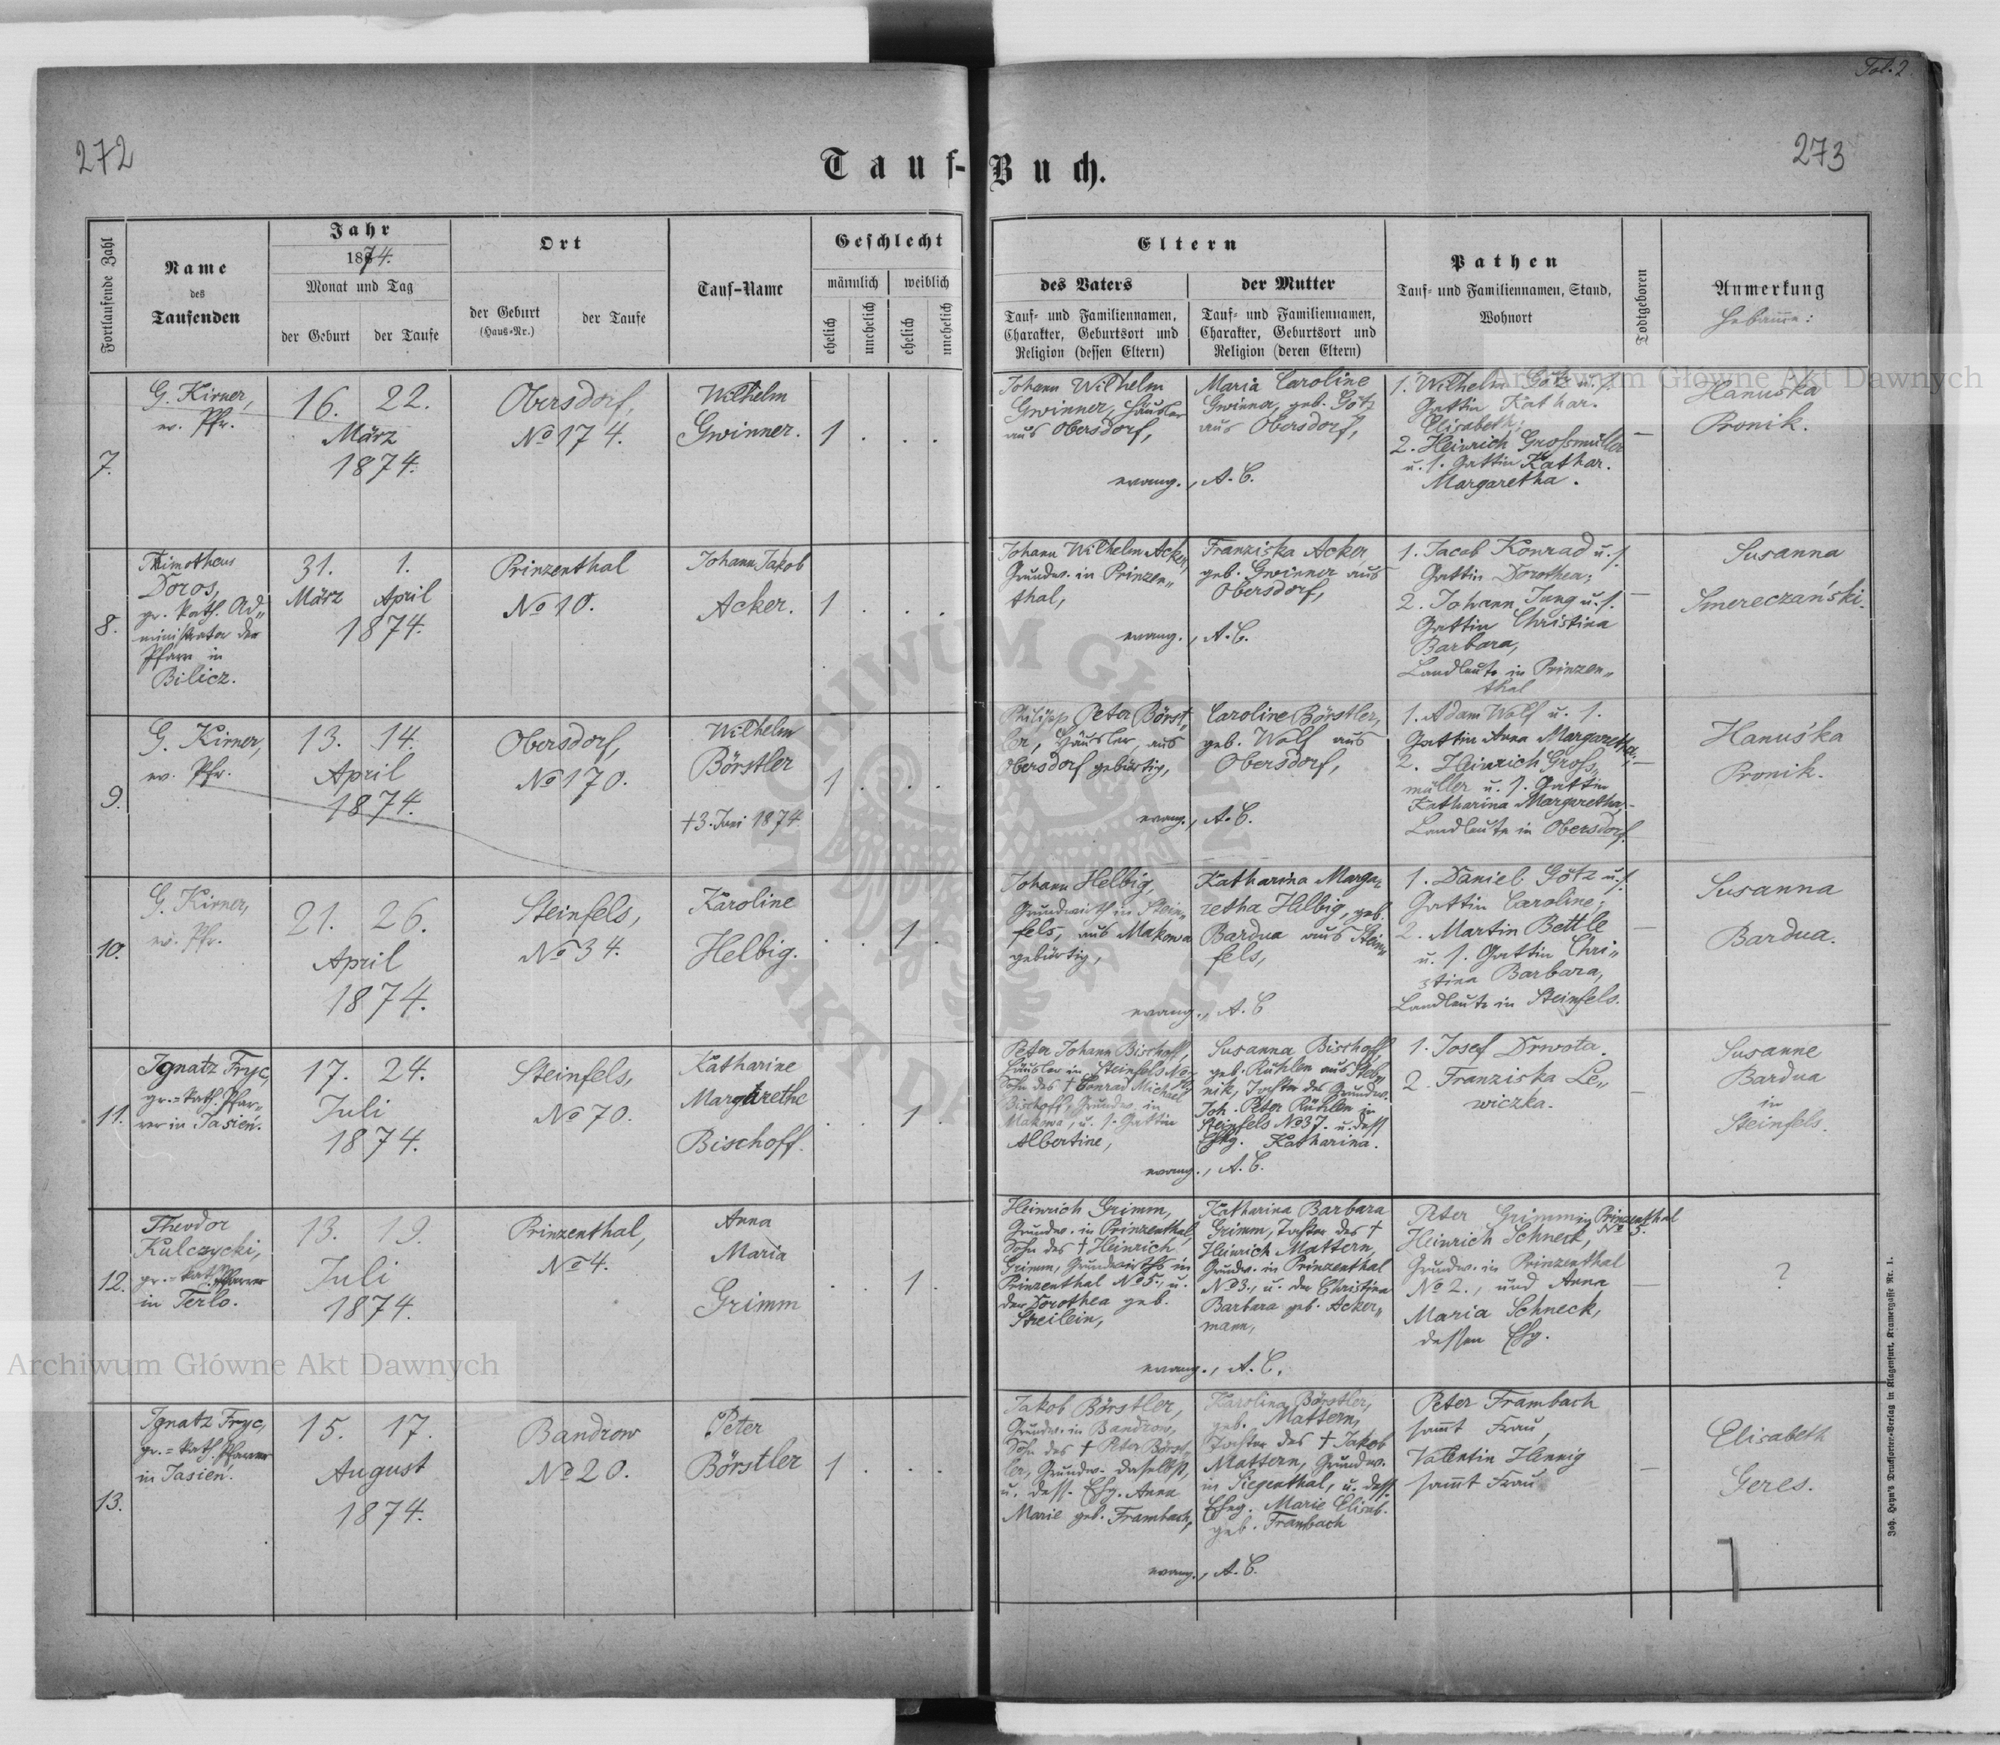 Fol. 2.
272
273
Tauf-Buch.
Fortlaufende Zahl
Name
des
Taufenden
Jahr
1874.
Monat und Tag
der Geburt
der Taufe
Ort
der Geburt
(Haus-Nr.)
der Taufe
Tauf-Name
Geschlecht
männlich
weiblich
ehelich
unehelich
ehelich
unehelich
Eltern
des Vaters
Tauf- und Familiennamen,
Charakter, Geburtsort und
Religion (dessen Eltern)
der Mutter
Tauf- und Familiennamen,
Charakter, Geburtsort und
Religion (deren Eltern)
Pathen
Tauf- und Familiennamen, Stand,
Wohnort
Todtgeboren
Anmerkung
Hebamme:
7.
G. Kirner,
ev. Pfr.
16. 22.
März
1874.
Obersdorf,
No 174.
Wilhelm
Gwinner.
1 . . .
Johann Wilhelm
Gwinner, Häusler
aus Obersdorf,
Maria Caroline
Gwinner, geb. Götz
aus Obersdorf,
evang., A. C.
1. Wilhelm Götz u. s.
Gattin Kathar.
Elisabeth;
2. Heinrich Grossmüller
u. s. Gattin Kathar.
Margaretha.
—
Hanuśka
Pronik.
8.
Timotheus
Doros,
gr. kath. Ad-
ministrator der
Pfarr in
Bilicz.
31. 1.
März April
1874.
Prinzenthal
No 10.
Johann Jakob
Acker.
1 . . .
Johann Wilhelm Acker,
Grundw. in Prinzen-
thal,
Franziska Acker
geb. Gwinner aus
Obersdorf,
evang., A. C.
1. Jacob Konrad u. s.
Gattin Dorothea;
2. Johann Jung u. s.
Gattin Christina
Barbara,
Landleute in Prinzen-
thal
—
Susanna
Smereczański.
9.
G. Kirner,
ev. Pfr.
13. 14.
April
1874.
Obersdorf,
No 170.
Wilhelm
Börstler
† 3. Juni 1874
1 . . .
Philipp Peter Börst-
ler, Häusler, aus
Obersdorf gebürtig,
Caroline Börstler,
geb. Wolf aus
Obersdorf,
evang., A. C.
1. Adam Wolf u. s.
Gattin Anna Margaretha;
2. Heinrich Gross-
müller u. s. Gattin
Katharina Margaretha,
Landleute in Obersdorf.
—
Hanuśka
Pronik.
10.
G. Kirner,
ev. Pfr.
21. 26.
April
1874.
Steinfels,
No 34.
Karoline
Helbig.
. . 1 .
Johann Helbig,
Grundwirth in Stein-
fels, aus Makowa
gebürtig,
Katharina Marga-
retha Helbig, geb.
Bardua aus Stein-
fels,
evang., A. C
1. Daniel Götz u. s.
Gattin Caroline;
2. Martin Bettle
u. s. Gattin Chri-
stina Barbara,
Landleute in Steinfels.
—
Susanna
Bardua.
11.
Ignatz Fryc,
gr.-kath. Pfar-
rer in Jasień.
17. 24.
Juli
1874.
Steinfels,
No 70.
Katharine
Margarethe
Bischoff.
. . 1 .
Peter Johann Bischoff,
Häusler in Steinfels No 70
Sohn des † Conrad Michael
Bischoff, Grundw. in
Makowa, u. s. Gattin
Albertine,
Susanna Bischoff,
geb. Rühlen aus Steb-
nik, Tochter des Grundw.
Joh. Peter Rühlen in
Steinfels No 37. u. dess
Ehg. Katharina.
evang., A. C.
1. Josef Drwota.
2. Franziska Le-
wiczka.
—
Susanne
Bardua
in
Steinfels.
12.
Theodor
Kulczycki,
gr.-kath. Pfarrer
in Terlo.
13. 19.
Juli
1874.
Prinzenthal,
No 4.
Anna
Maria
Grimm
. . 1 .
Heinrich Grimm,
Grundw. in Prinzenthal,
Sohn des † Heinrich
Grimm, Grundwirths in
Prinzenthal No 5., u.
der Dorothea geb.
Streilein,
Katharina Barbara
Grimm, Tochter des †
Heinrich Mattern,
Grundw. in Prinzenthal
No 3., u. der Christina
Barbara geb. Acker-
mann,
evang., A. C.
Peter Grimm in Prinzenthal
No 5.
Heinrich Schneck,
Grundw. in Prinzenthal
No 2., und Anna
Maria Schneck,
dessen Ehg.
—
?
13.
Ignatz Fryc,
gr.-kath. Pfarrer
in Jasień.
15. 17.
August
1874.
Bandrow
No 20.
Peter
Börstler
1 . . .
Jakob Börstler,
Grundw. in Bandrow,
Sohn des † Peter Börst-
ler, Grundw. daselbst,
u. dess. Ehg. Anna
Marie geb. Frambach,
Karolina Börstler,
geb. Mattern,
Tochter des † Jakob
Mattern, Grundw.
in Siegenthal, u. dess.
Ehg. Marie Elisab.
geb. Frambach
evang., A. C.
Peter Frambach
sammt Frau,
Valentin Hennig
sammt Frau
—
Elisabeth
Geres.
Joh. Heyn's Drucksorten-Verlag in Klagenfurt, Kramergasse Nr. 1.
Archiwum Główne Akt Dawnych
Archiwum Główne Akt Dawnych